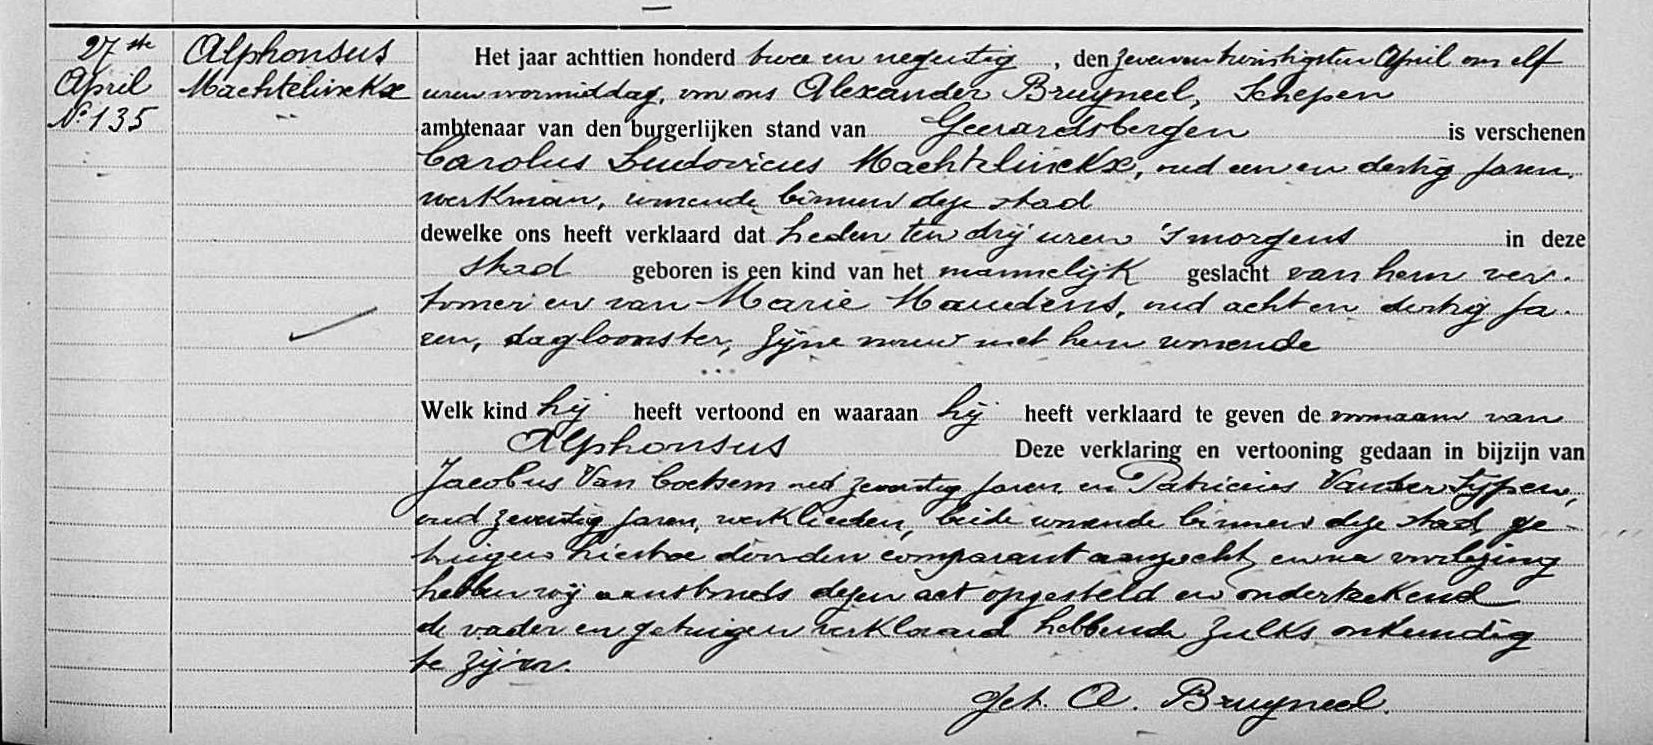 27ste
April
No 135
Alphonsus
Machtelinckx
Het jaar achttien honderd twee en negentig, den zevenentwintigsten April om elf
uren voormiddag, voor ons Alexander Bruyneel, Schepen
ambtenaar van den burgerlijken stand van Geerardsbergen is verschenen
Carolus Ludovicus Machtelinckx, oud een en dertig jaren
werkman, wonende binnen deze stad
dewelke ons heeft verklaard dat heden ten drij uren 's morgens in deze
stad geboren is een kind van het mannelijk geslacht van hem ver-
tooner en van Marie Mandens, oud acht en dertig ja-
ren, dagloonster, zijne vrouw met hem wonende
Welk kind hij heeft vertoond en waaraan hij heeft verklaard te geven de voornaam van
Alphonsus Deze verklaring en vertooning gedaan in bijzijn van
Jacobus Van Coetsem oud zeventig jaren en Patricius Vander Lijpen,
oud zeventig jaren, werklieden, beide wonende binnen deze stad, ge-
tuigen hiertoe door den comparant aangezocht, en na voorlezing
hebben wij aanstonds dezen act opgesteld en onderteekend
de vader en getuigen verklaard hebbende zulks onkundig
te zijn.
Get. A. Bruyneel.